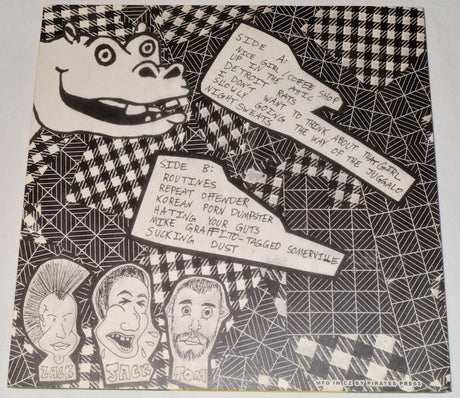 SIDE A:
NICE GIRL/COFFEE SHOP
UP IN THE ATTIC
DETROIT RATS
I DON'T WANT TO THINK ABOUT THAT GIRL
SLOWLY GOING THE WAY OF THE JUGGALO
NIGHT SWEATS
SIDE B:
ROUTINES
REPEAT OFFENDER
KOREAN PORN DUMPSTER
HATING YOUR GUTS
MIKE GRAFFITO-TAGGED SOMERVILLE
SUCKING DUST
ZACK JACK TOM
MFD IN CZ BY PIRATES PRESS